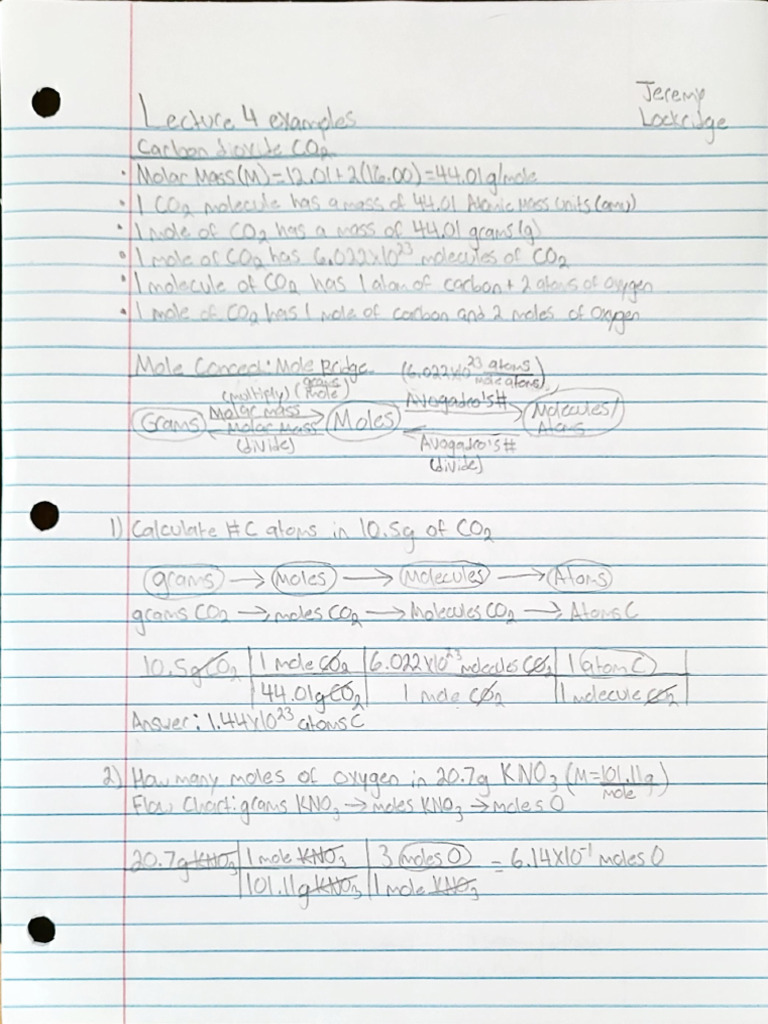 Jeremy
Lockridge
Lecture 4 examples
Carbon dioxide CO₂
• Molar Mass (M) = 12.01 + 2(16.00) = 44.01 g/mole
• 1 CO₂ molecule has a mass of 44.01 Atomic Mass Units (amu)
• 1 mole of CO₂ has a mass of 44.01 grams (g)
• 1 mole of CO₂ has 6.022x10²³ molecules of CO₂
• 1 molecule of CO₂ has 1 atom of carbon + 2 atoms of oxygen
• 1 mole of CO₂ has 1 mole of carbon and 2 moles of oxygen
Mole Concept: Mole Bridge (6.022x10²³ atoms/mole atoms)
(multiply) (grams/mole)
Molar mass Avogadro's #
Grams Moles Molecules/Atoms
Molar Mass Avogadro's #
(divide) (divide)
1) Calculate # C atoms in 10.5g of CO₂
grams → Moles → Molecules → Atoms
grams CO₂ → moles CO₂ → Molecules CO₂ → Atoms C
10.5g CO₂ | 1 mole CO₂ | 6.022x10²³ molecules CO₂ | 1 atom C
44.01g CO₂ | 1 mole CO₂ | 1 molecule CO₂
Answer: 1.44x10²³ atoms C
2) How many moles of oxygen in 20.7g KNO₃ (M=101.11g/mole)
Flow Chart: grams KNO₃ → moles KNO₃ → moles O
20.7g KNO₃ | 1 mole KNO₃ | 3 moles O = 6.14x10⁻¹ moles O
101.11g KNO₃ | 1 mole KNO₃